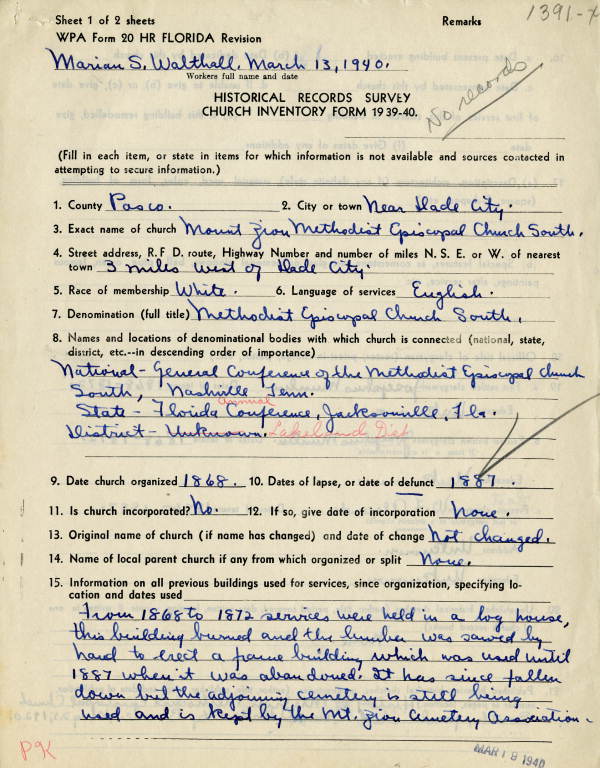 Sheet 1 of 2 sheets Remarks 1391-x
WPA Form 20 HR FLORIDA Revision
Marian S. Walthall. March 13, 1940.
Workers full name and date
No records
HISTORICAL RECORDS SURVEY
CHURCH INVENTORY FORM 1939-40.
(Fill in each item, or state in items for which information is not available and sources contacted in
attempting to secure information.)
1. County Pasco. 2. City or town Near Dade City.
3. Exact name of church Mount Zion Methodist Episcopal Church South.
4. Street address, R.F D. route, Highway Number and number of miles N. S. E. or W. of nearest
town 3 miles west of Dade City.
5. Race of membership White. 6. Language of services English.
7. Denomination (full title) Methodist Episcopal Church South.
8. Names and locations of denominational bodies with which church is connected (national, state,
district, etc.--in descending order of importance)
National - General Conference of the Methodist Episcopal Church
South, Nashville Tenn.
annual
State - Florida Conference, Jacksonville, Fla.
District - Unknown. Lakeland Dist
9. Date church organized 1868. 10. Dates of lapse, or date of defunct 1887.
11. Is church incorporated? No. 12. If so, give date of incorporation None.
13. Original name of church (if name has changed) and date of change Not changed.
14. Name of local parent church if any from which organized or split None.
15. Information on all previous buildings used for services, since organization, specifying lo-
cation and dates used
From 1868 to 1872 services were held in a log house,
this building burned and the lumber was sawed by
hand to erect a frame building which was used until
1887 when it was abandoned. It has since fallen
down but the adjoining cemetery is still being
used and is kept by the Mt. Zion Cemetery Association.
PK
MAR 19 1940